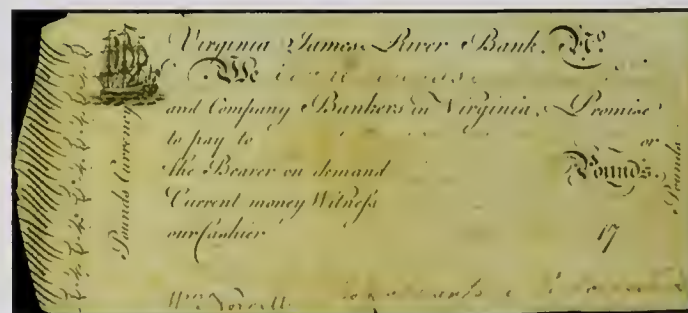 Virginia James River Bank. No.
We
and Company Bankers in Virginia, Promise
to pay to or
the Bearer on demand Pounds.
Current money Witness
our Cashier 17
Wm Norvell
Pounds Currency
Pounds